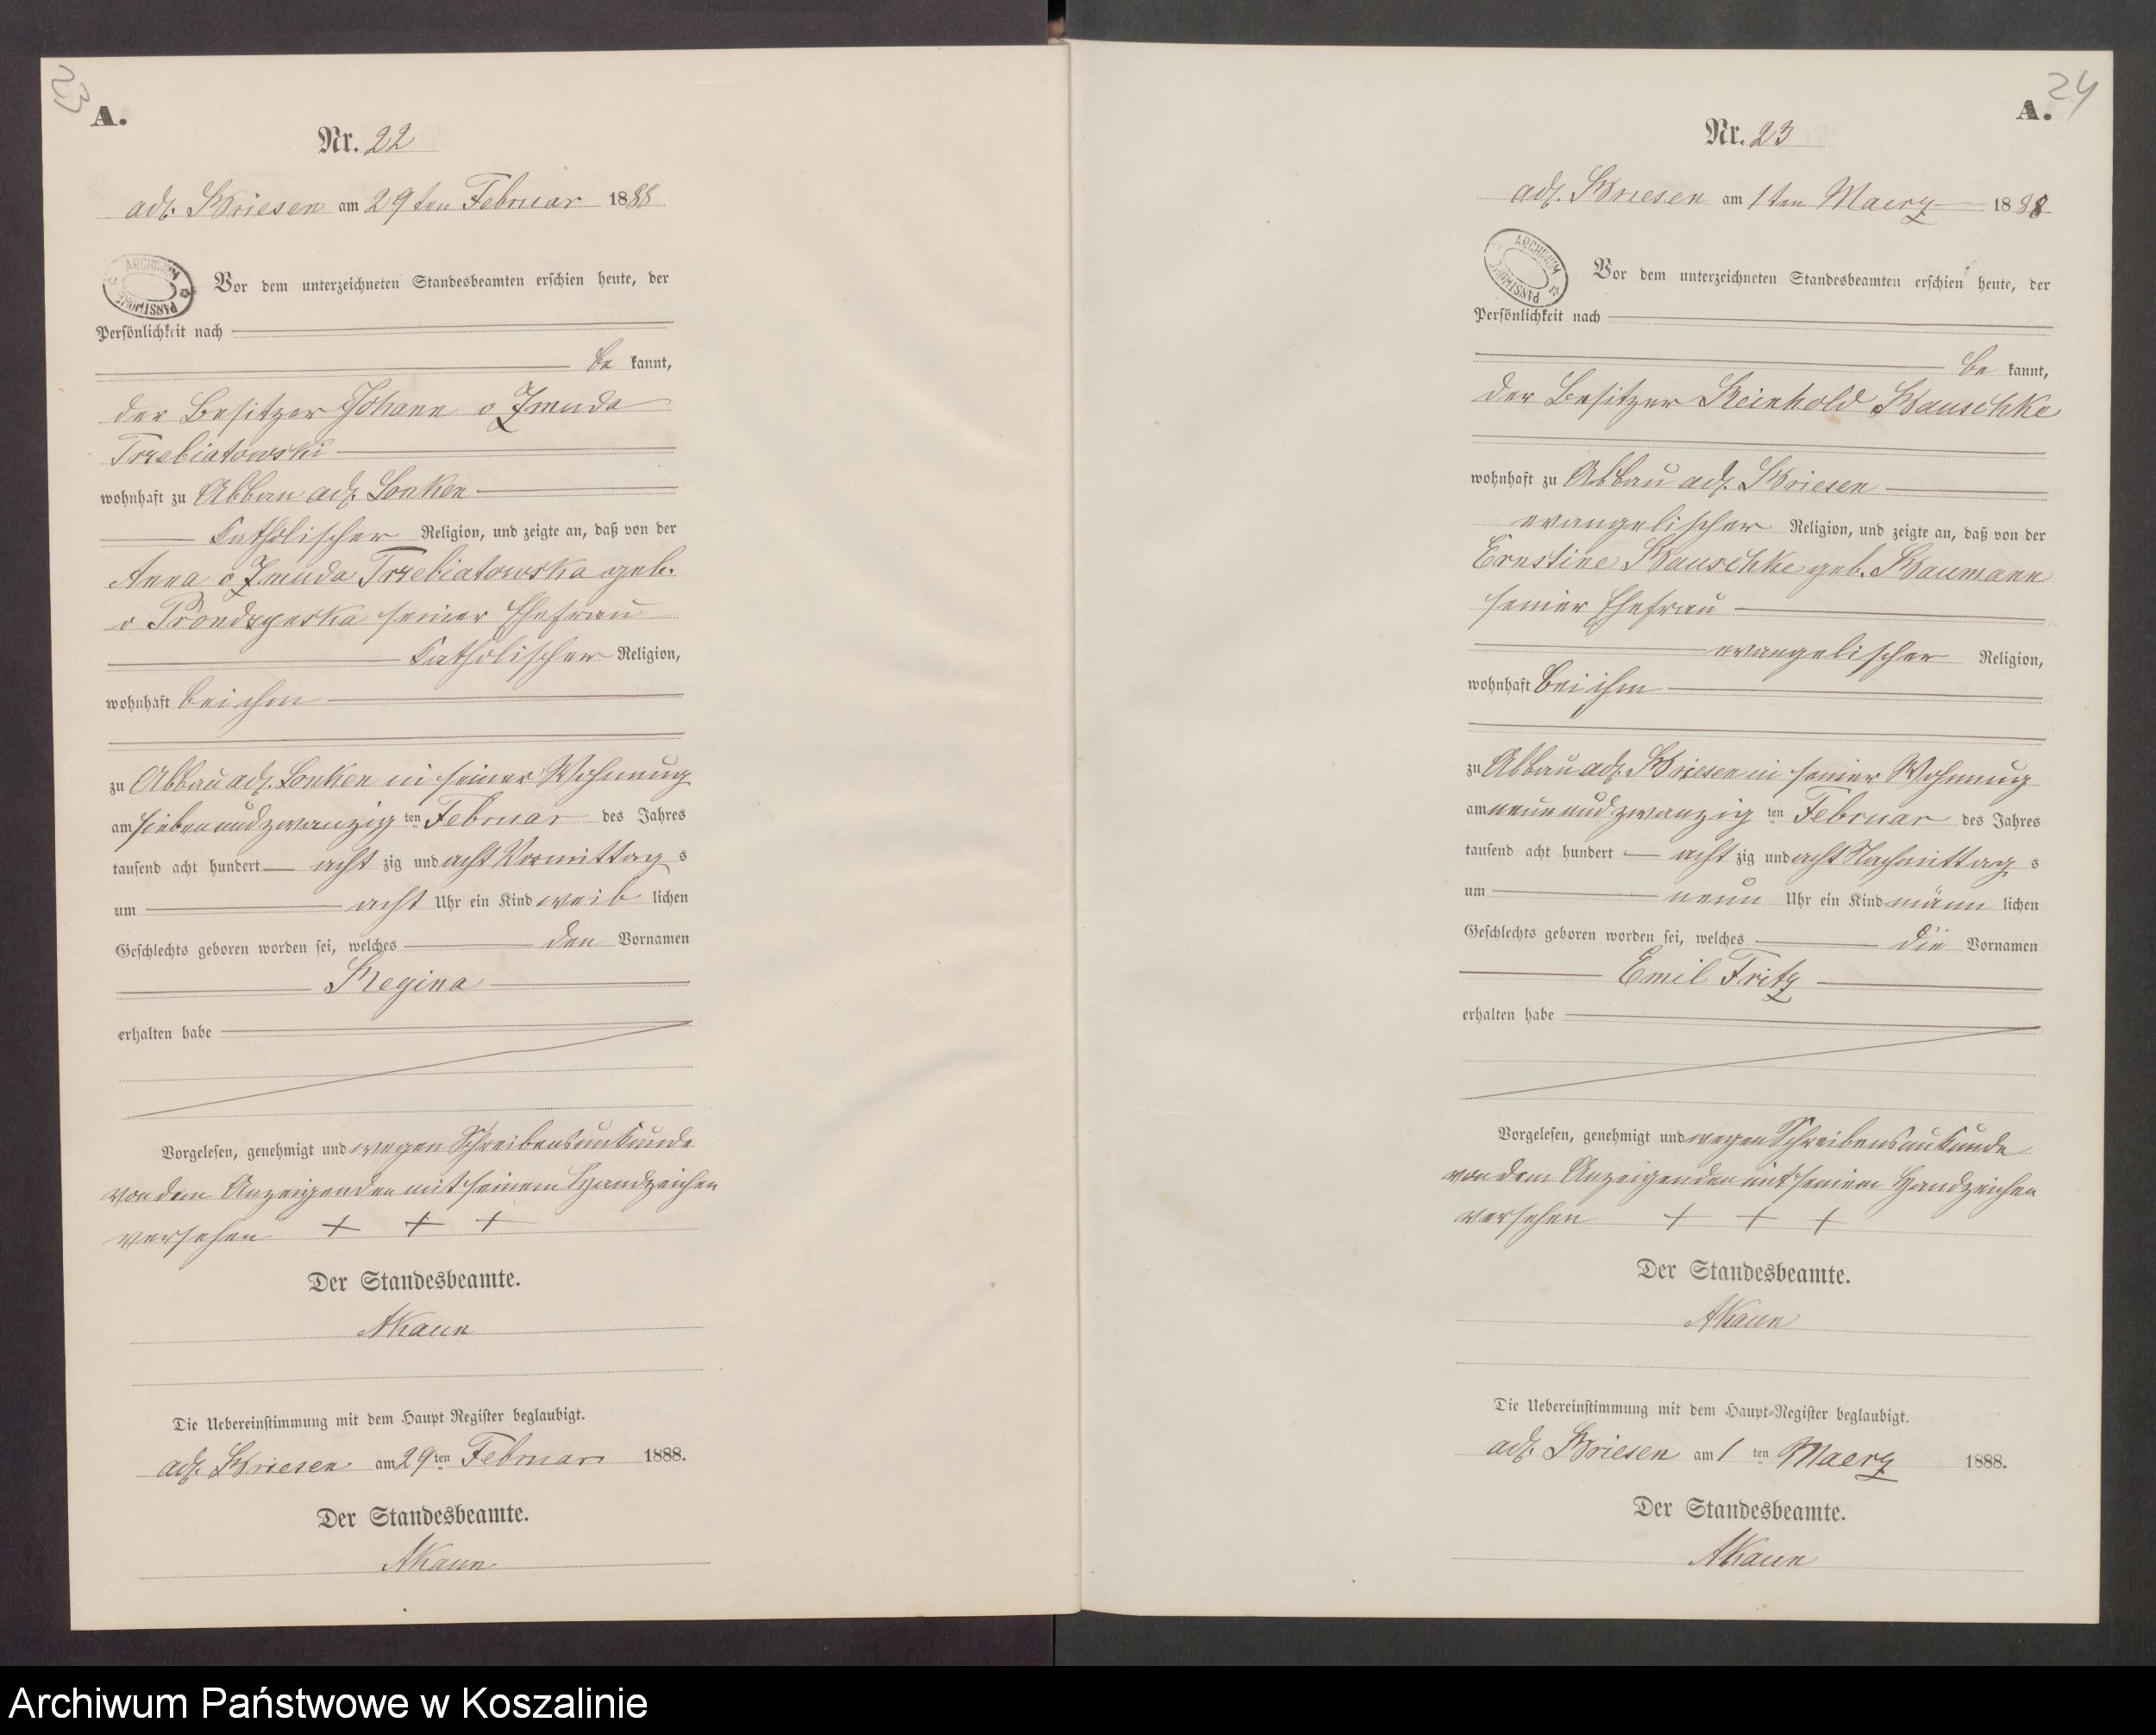 23
A.
Nr. 22
adl. Briesen am 29ten Februar 1888
ARCHIWUM PAŃSTWOWE
Vor dem unterzeichneten Standesbeamten erschien heute, der
Persönlichkeit nach
be kannt,
der Besitzer Johann v Zmuda
Trzebiatowski
wohnhaft zu Abbau adl. Lonken
katholischer Religion, und zeigte an, daß von der
Anna v Zmuda Trzebiatowska geb.
v Prondzynska seiner Ehefrau
katholischer Religion,
wohnhaft bei ihm
zu Abbau adl. Lonken in seiner Wohnung
am siebenundzwanzig ten Februar des Jahres
tausend acht hundert acht zig und acht Vormittag s
um acht Uhr ein Kind weib lichen
Geschlechts geboren worden sei, welches den Vornamen
Regina
erhalten habe
Vorgelesen, genehmigt und wegen Schreibensunkunde
von dem Anzeigenden mit seinem Handzeichen
versehen + + +
Der Standesbeamte.
AKaun
Die Uebereinstimmung mit dem Haupt Register beglaubigt.
adl. Briesen am 29 ten Februar 1888.
Der Standesbeamte.
AKaun
24
A.
Nr. 23
adl. Briesen am 1 ten Maerz 1888
ARCHIWUM PAŃSTWOWE
Vor dem unterzeichneten Standesbeamten erschien heute, der
Persönlichkeit nach
be kannt,
der Besitzer Reinhold Bauschke
wohnhaft zu Abbau adl. Briesen
evangelischer Religion, und zeigte an, daß von der
Ernestine Bauschke geb. Baumann
seiner Ehefrau
evangelischer Religion,
wohnhaft bei ihm
zu Abbau adl. Briesen in seiner Wohnung
am neunundzwanzig ten Februar des Jahres
tausend acht hundert acht zig und acht Nachmittag s
um neun Uhr ein Kind männ lichen
Geschlechts geboren worden sei, welches die Vornamen
Emil Fritz
erhalten habe
Vorgelesen, genehmigt und wegen Schreibensunkunde
von dem Anzeigenden mit seinem Handzeichen
versehen + + +
Der Standesbeamte.
AKaun
Die Uebereinstimmung mit dem Haupt-Register beglaubigt.
adl. Briesen am 1 ten Maerz 1888.
Der Standesbeamte.
AKaun
Archiwum Państwowe w Koszalinie